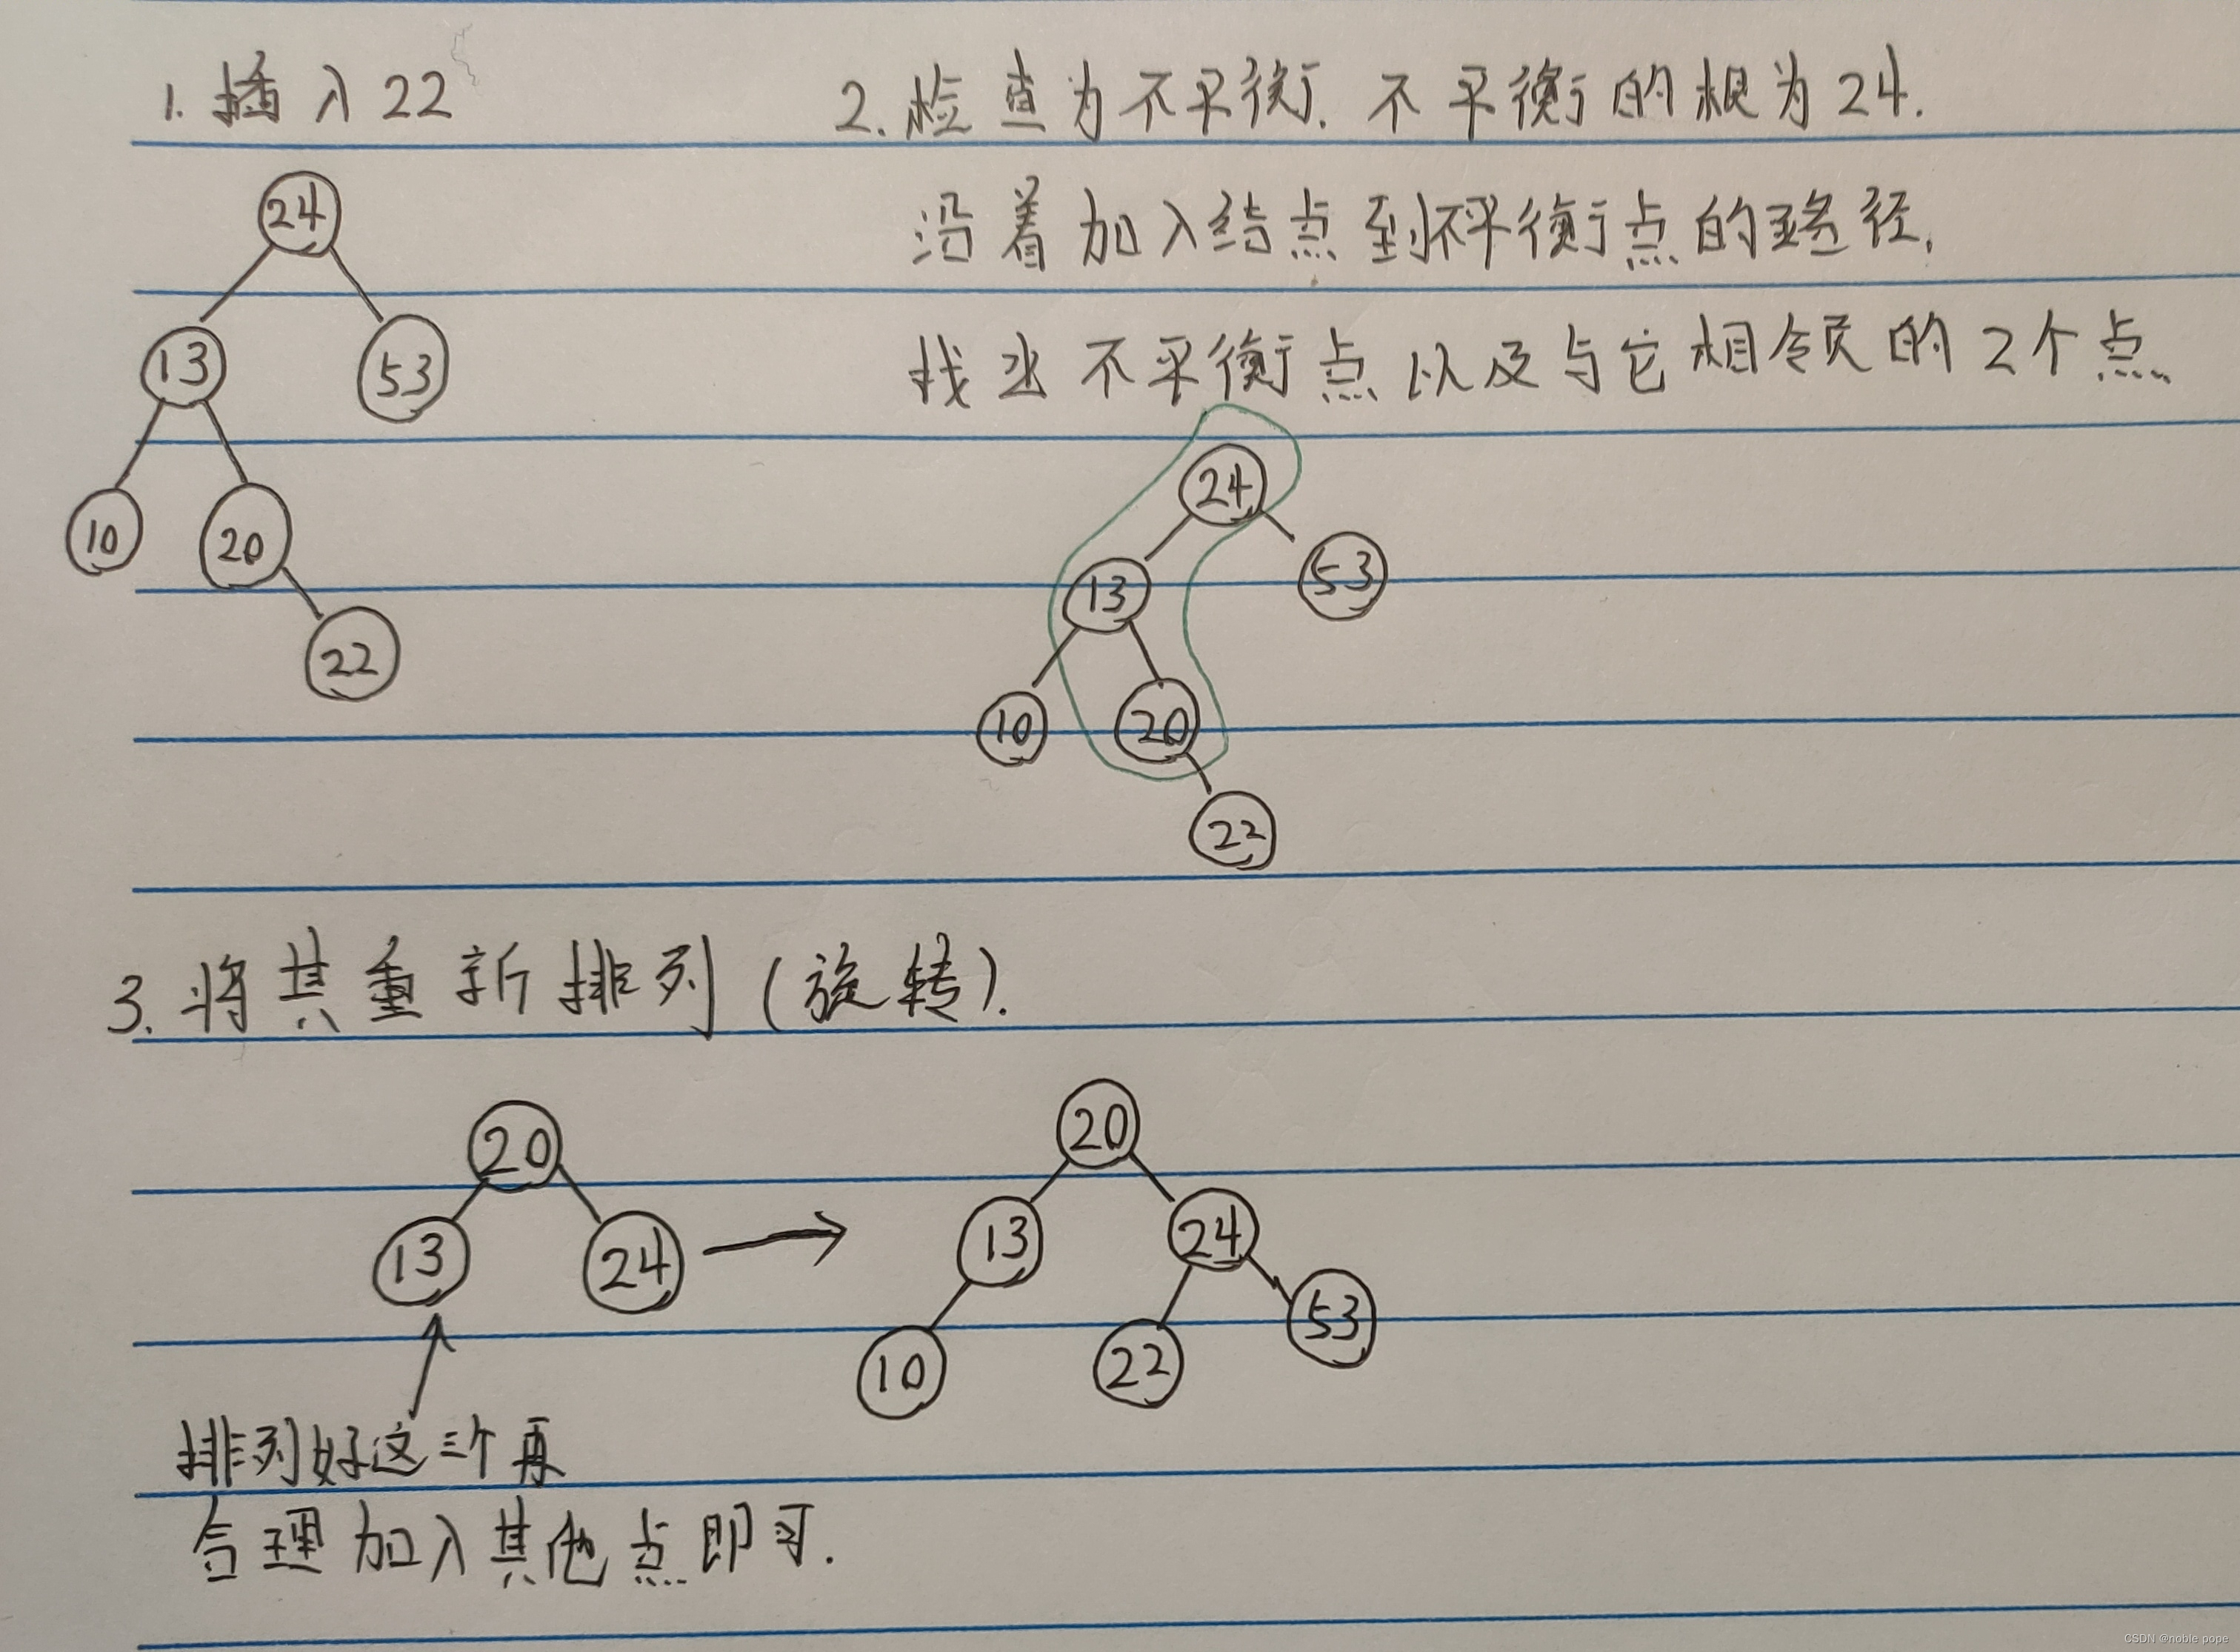 1. 插入22
2. 检查为不平衡. 不平衡的根为24.
沿着加入结点到不平衡点的路径,
找出不平衡点以及与它相领的2个点
24
13
53
10
20
22
24
13
53
10
20
22
3. 将其重新排列(旋转).
20
13
24
20
13
24
10
22
53
排列好这三个再
合理加入其他点即可.
CSDN @noble pope